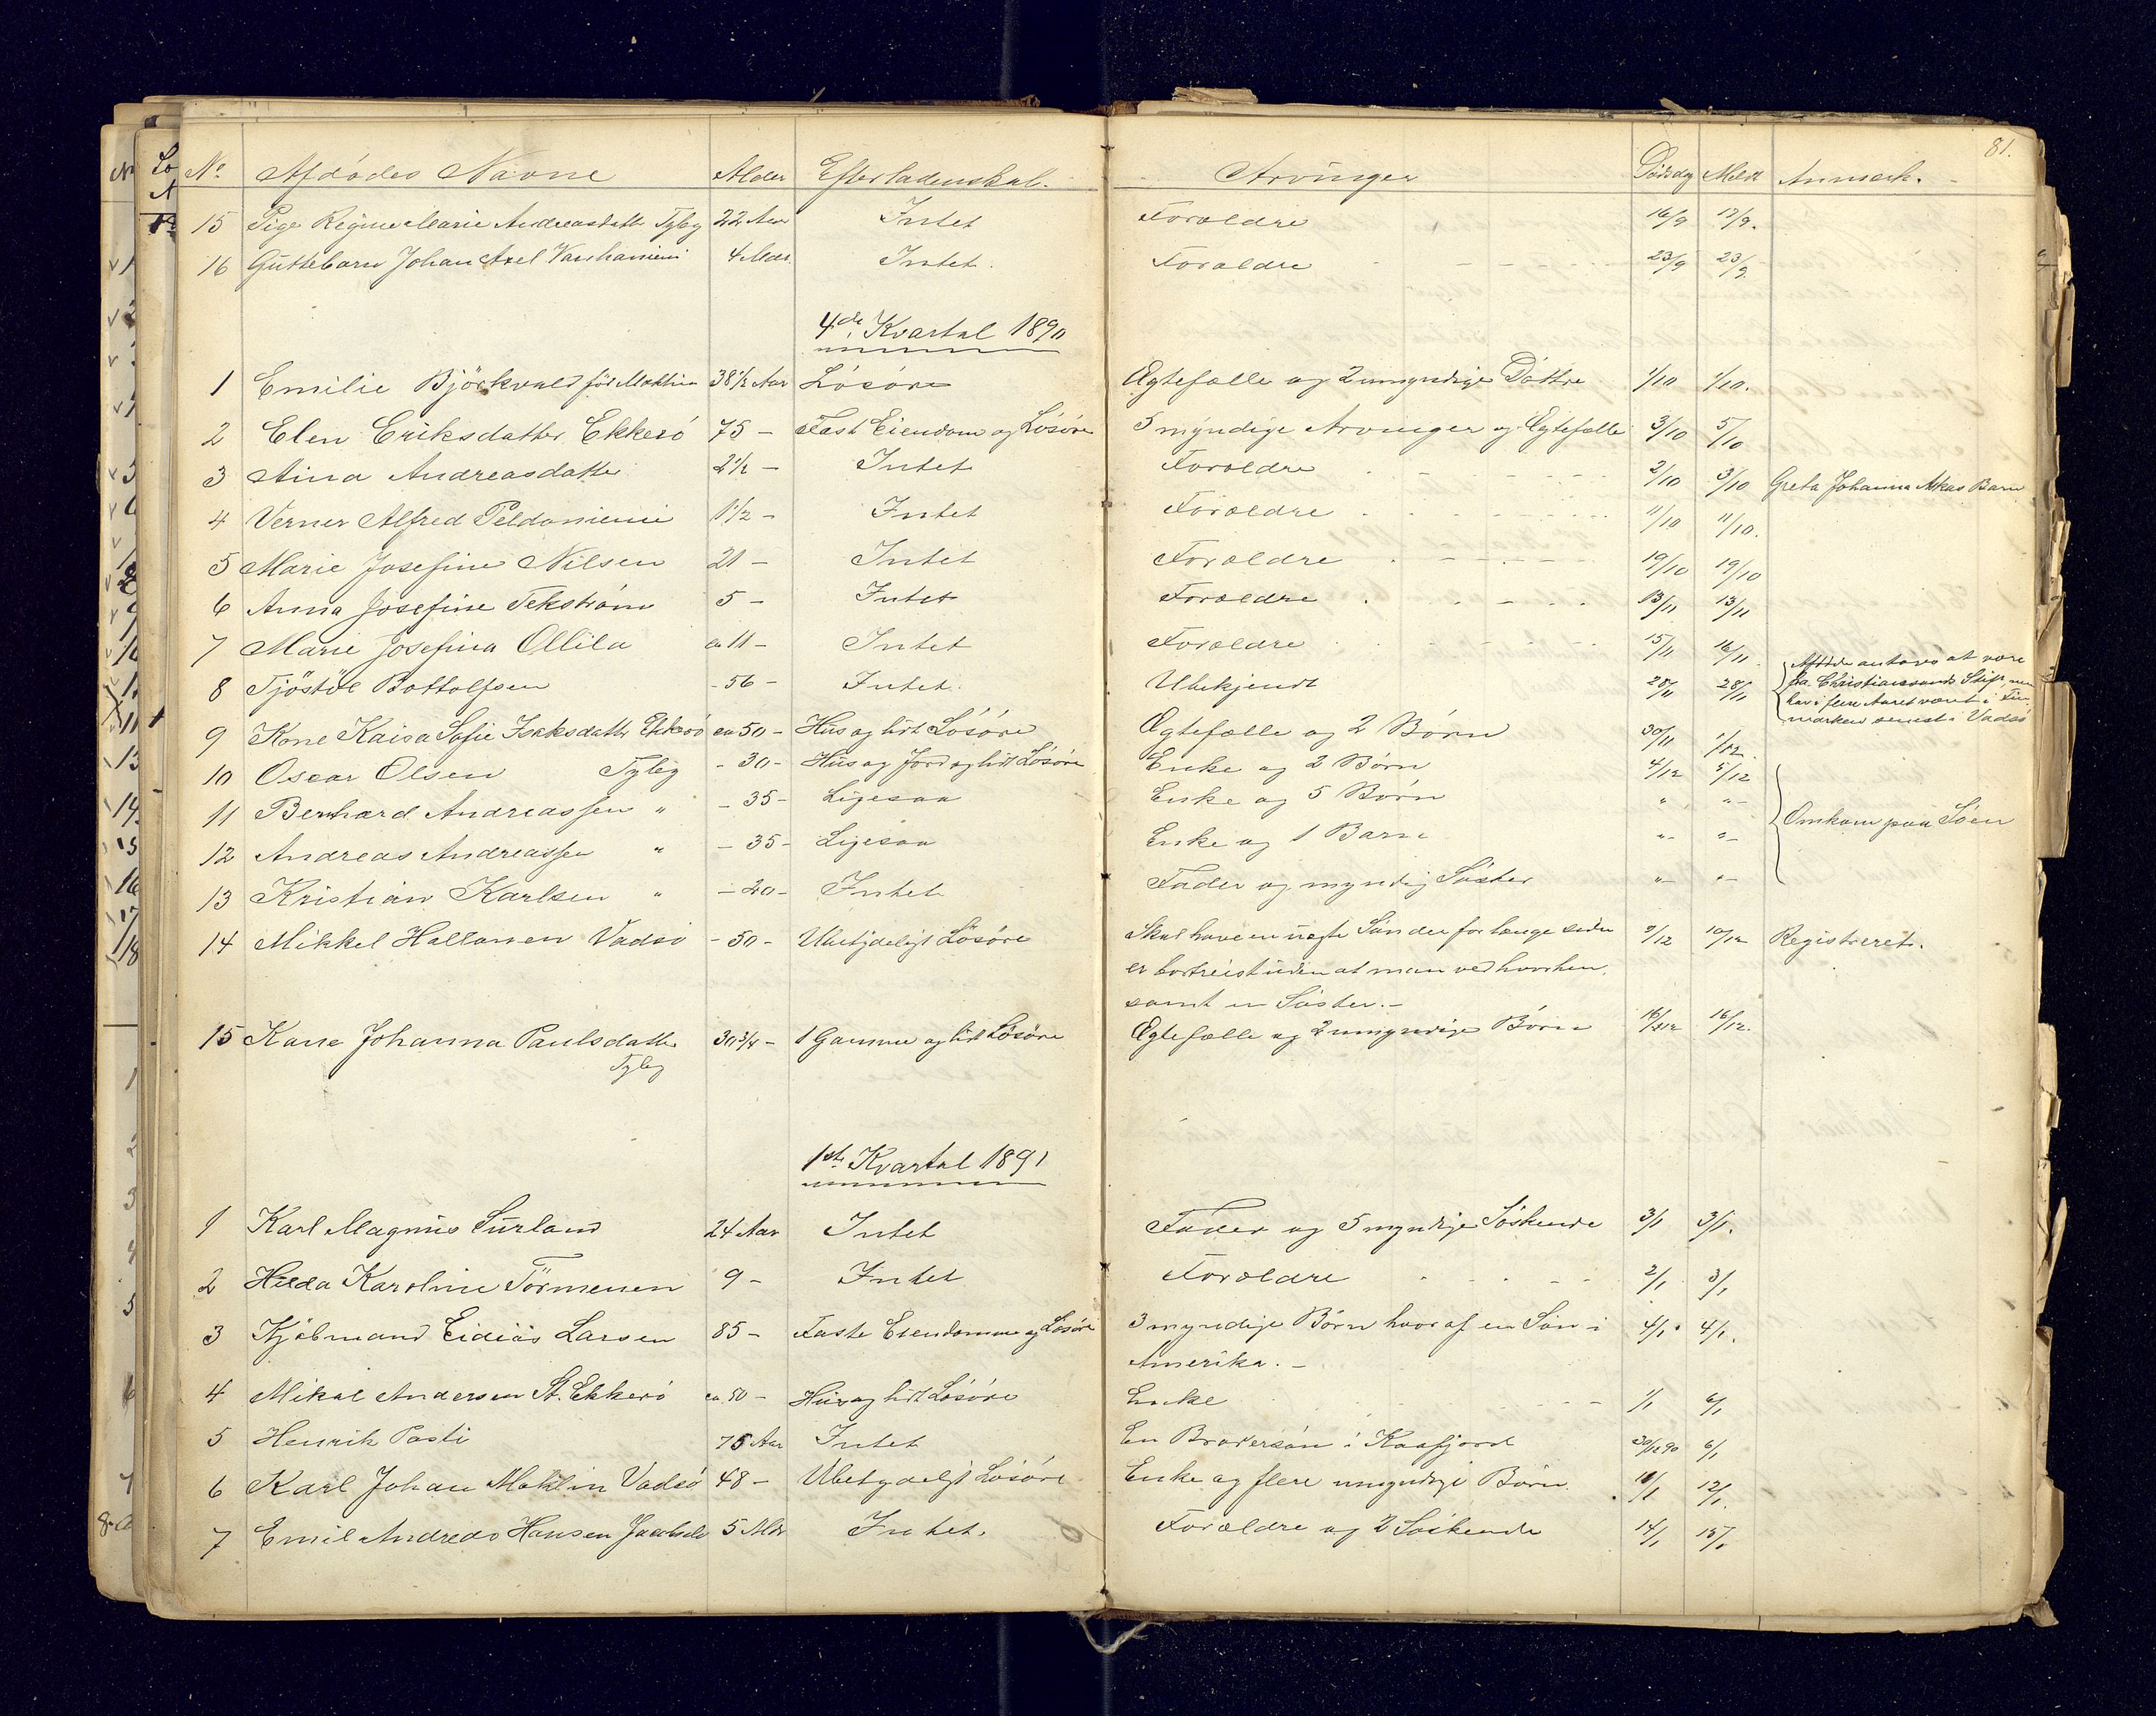 81.
No. Afdødes Navne Alder Efterladenskab. Arvinger Dødsdag Meldt Anmerk.
15 Pige Regine Marie Andreasdatter Fyleg 22 Aar Intet Forældre 16/9 17/9.
16 Guttebarn Johan Axel Vanhaniemi 4 Mdr. Intet. Forældre 23/9 23/9
4de Kvartal 1890
1 Emilie Björkvald föd Moklin 38 1/2 Aar Lösöre Ægtefælle og 2 umyndige Døttre 1/10 1/10.
2 Elen Eriksdatter Ekkerö 75 - Fast Eiendom og Lösöre 5 myndige Arvinger og Ægtefælle 3/10 5/10
3 Aina Andreasdatter 2 1/2 - Intet Forældre 2/10 3/10 Greta Johanna Akas Barn
4 Verner Alfred Peldoniemi 1 1/2 - Intet Forældre 11/10 11/10.
5 Marie Josefine Nilsen 21 - Intet Forældre 19/10 19/10
6 Anna Josefine Tekström 5 - Intet Forældre 13/11 13/11
7 Marie Josefina Ollila ca 11 - Intet Forældre 15/11 16/11.
8 Tjöstöl Bottolfsen - 56 - Intet. Ubekjendt 28/11 28/11 Afdøde antores at være
fra Christianssands Stift, men
har i flere Aaret været i Fin-
marken senest i Vadsö
9 Kone Kaisa Sofie Isaksdatter Ekkerö ca 50 - Hus og lidt Lösöre Ægtefælle og 2 Børn 30/11 1/12.
10 Oscar Olsen Fyleg - 30 - Hus og Jord og lidt Lösöre Enke og 2 Børn 4/12 5/12
11 Bernhard Andreassen " - 35 - Ligesaa Enke og 5 Børn " "-
12 Andreas Andreassen " - 35 - Ligesaa Enke og 1 Barn "- "- Omkom paa Söen
13 Kristian Karlsen " - 20 - Intet Fader og myndig Søster "- "-
14 Mikkel Hallonen Vadsö - 50 - Ubetydeligt Lösöre Skal have en uægte Søn der for længe siden 9/12 10/12 Registreret.
er bortreist uden at man ved hvorhen,
samt en Søster. -
15 Kone Johanna Paulsdatter 30 3/4 - 1 Gamme og lidt Lösöre Ægtefælle og 2 umyndige Børn 16/12 16/12.
Fyleg
1ste Kvartal 1891
1 Karl Magnus Surland 24 Aar Intet Fader og 5 myndige Söskende 3/1 3/1.
2 Hilda Karoline Törmenen 9 - Intet Forældre 2/1 3/1
3 Kjøbmand Eidiös Larsen 85 - Faste Eiendomme og Lösöre 3 myndige Børn hvoraf en Søn i 4/1 4/1.
Amerika. -
4 Mikal Andersen St. Ekkerö ca 50 - Hus og lidt Lösöre Enke 1/1 6/1
5 Henrik Posti 75 Aar Intet En Brodersøn i Kaafjord 30/12 90 6/1
6 Karl Johan Moklin Vadsö 48 - Ubetydeligt Lösöre Enke og flere umyndige Børn 10/1 12/1.
7 Emil Andreas Hansen 5 Mdr Intet. Forældre og 2 Söskende 14/1 15/1